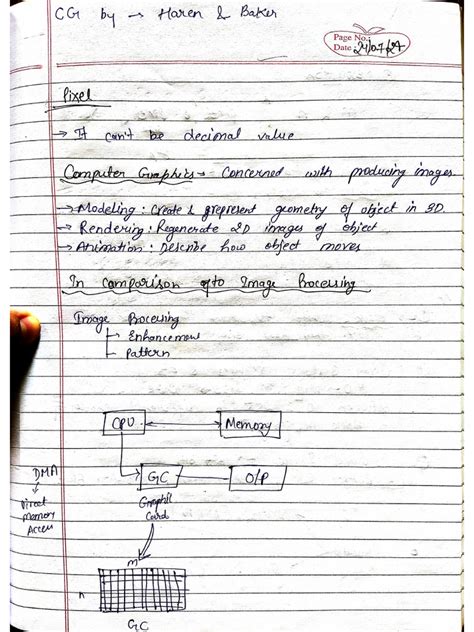 CG by → Haren & Baker
Page No.:
Date: 24/07/24
Pixel
→ It can't be decimal value
Computer Graphics → Concerned with producing images.
→ Modeling : Create & represent geometry of object in 3D.
→ Rendering : Regenerate 2D images of object
→ Animation : Describe how object moves
In comparison to Image Processing
Image Processing
Enhancement
Pattern
CPU Memory
GC O/P
DMA
Direct
Memory
Access
Graphic
Card
m
n
GC